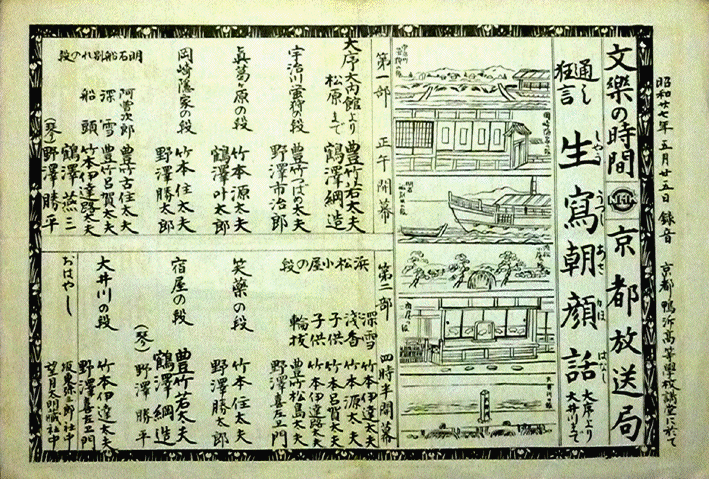 昭和廿七年 五月廿五日 録音 京都 鴨沂高等學校講堂に於て
文樂の時間 NHK 京都放送局
通し狂言 生寫朝顔話 大序より 大井川まで
しやう うつし あさ がほ はなし
第一部 正午開幕
大序 大内館より
松原まで
豊竹若太夫
鶴澤綱造
宇治川螢狩の段
豊竹つばめ太夫
野澤市治郎
眞葛ヶ原の段
竹本源太夫
鶴澤叶太郎
岡崎隱家の段
竹本住太夫
野澤勝太郎
明石船別れの段
阿曽次郎 豊竹古住太夫
深雪 豊竹呂賀太夫
船頭 竹本伊達路太夫
鶴澤燕三
(琴) 野澤勝平
第二部 四時半開幕
浜松小屋の段
深雪 竹本伊達太夫
浅香 竹本源太夫
子供 竹本呂賀太夫
子供 竹本伊達路太夫
輪抜 豊竹松島太夫
野澤喜左ヱ門
笑藥の段
竹本住太夫
野澤勝太郎
宿屋の段
豊竹若太夫
鶴澤綱造
(琴) 野澤勝平
大井川の段
竹本伊達太夫
野澤喜左ヱ門
おはやし
望月太明藏社中